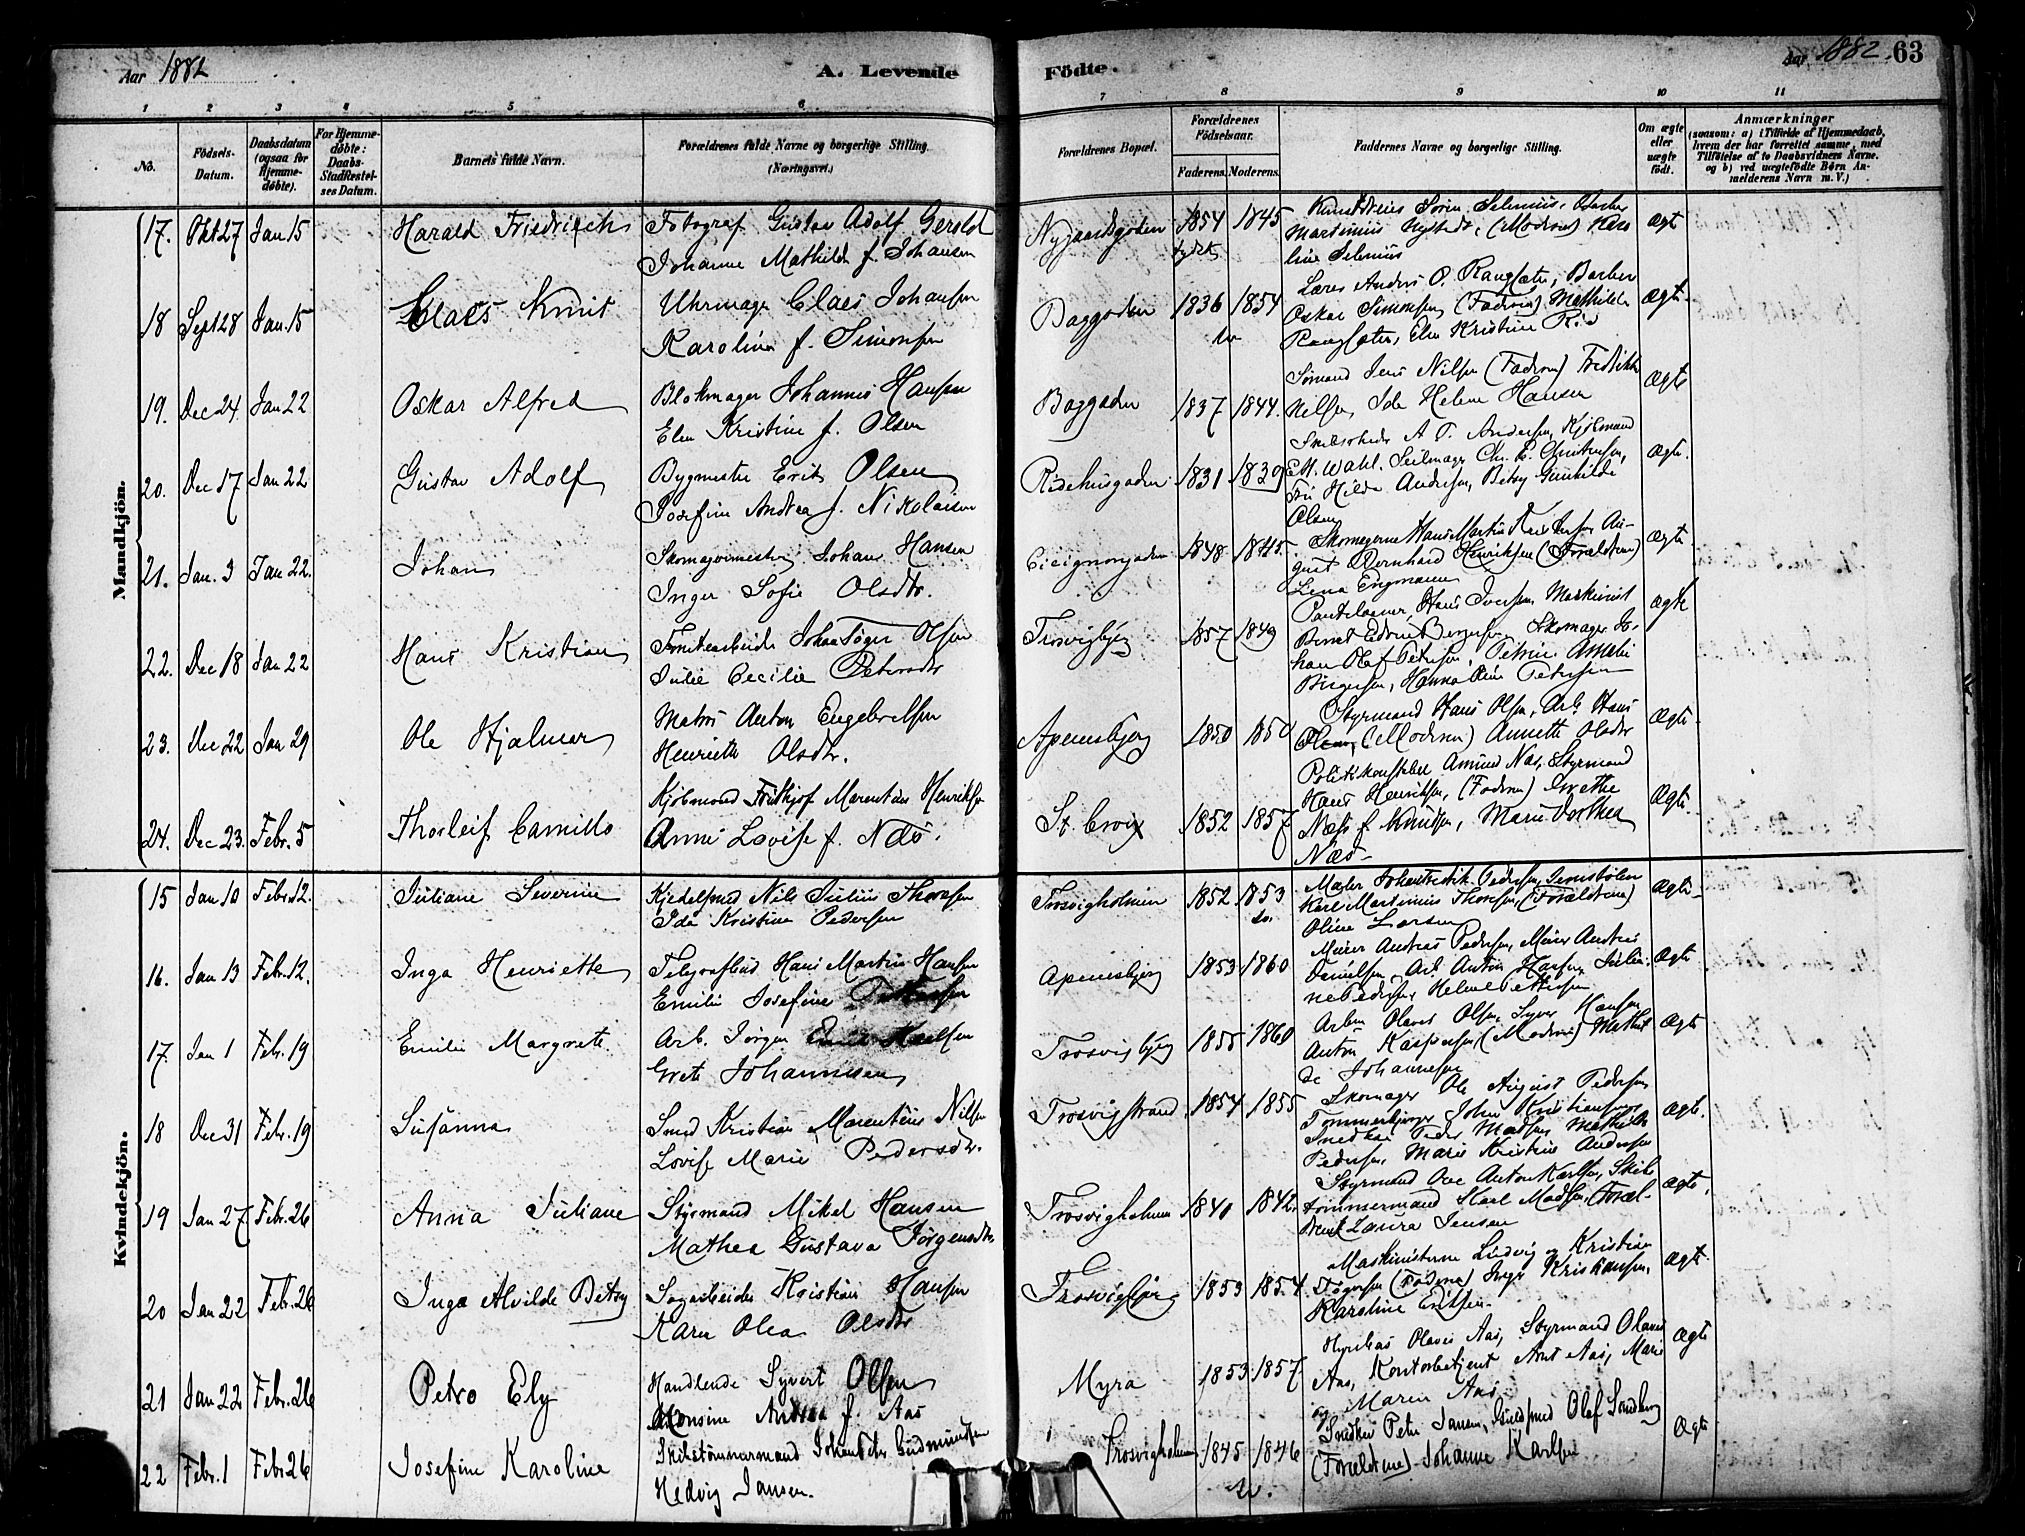 Aar 1882
A. Levende
Födte.
Aar 1882. 63
1 2 3 4 5 6 7 8 9 10 11
No.
Födsels-Datum.
Daabsdatum (ogsaa for Hjemme-döbte).
For Hjemme-döbte: Daabs-Stadfæstel-ses Datum.
Barnets fulde Navn.
Forældrenes fulde Navne og borgerlige Stilling. (Næringsvei.)
Forældrenes Bopæl.
Forældrenes Födselsaar.
Faderens. Moderens.
Faddernes Navne og borgerlige Stilling.
Om ægte eller uægte födt.
Anmærkninger
(saasom: a) i Tilfælde af Hjemmedaab,
hvem der har forrettet samme, med
Tilföielse af to Daabsvidners Navne.
og b) ved uægtefödte Börn An-
melderens Navn m. V.)
Mandkjön.
17. Okt 27 Jan 15 Harald Friedrich Fotograf Gustav Adolf Gerold
Johanne Mathilde f. Johansen
Nygaardsgaden 1854 1845 Martinius Nysted, (Modren) Karo
line Selenius Ægt
18 Sept 28 Jan. 15 Claes Knut Uhrmager Claes Johansen
Karoline f. Simonsen
Baggaden 1836 1854 Oskar Simonsen (Fadren) Mathilde
Kristine Ægte
19. Dec 24. Jan 22 Oskar Alfred Blokmager Johannes Hansen
Elen Kristine f. Olsen
Baggaden 1837 1844. Sömand Jens Nilsen (Fadren) Fredrikke
Nilsen, Helene Hansen Ægte
20. Dec 17 Jan 22 Gustav Adolf Bygmester Erik Olsen
Josefine Andrea f. Nikolaisen
Ridehusgaden 1831 1839 A. T. Andersen, Kjöbmand
Wahl, Seilmager Chr. E.
Hilda Andersen, Betzy Gunhilde
Olsen Ægte.
21. Jan. 3 Jan 22. Johan Skomagermester Johan Hansen
Inger Sofie Olsdtr.
Cicignongaden 1848 1845. Skomagerne Hans Martin
gust Bernhard Henriksen (Forældrene)
Lina Engmann Ægte
22. Dec 18 Jan 22 Hans Kristian Johan Olsen
Julie Cecilie Petersdtr
Trosvigbjerg 1857 1849 Hans Iversen, Maskinist
Skomager Jo-
han Olaf Petersen, Petrine Amelie
Birgersen, Hanna Petersen Ægte
23. Dec 22 Jan 29 Ole Hjalmar Matros Anton Engebretsen
Henriette Olsdtr.
Apenesbjerg 1850 1850 Styrmand Hans Olsen, Arb. Hans
Olsen, (Modren) Annette Olsdtr Ægte
24. Dec 23. Febr. 5 Thorleif Camillo Kjöbmand Fridtjof Marentius Henriksen
Anne Lovise f. Næs.
St. Croix 1852 1857 Politikonstabel Amund Næs, Styrmand
Hans Henriksen, (Fadren) Grethe
Næss f. Knudsen, Marie Dorthea
Næs Ægte
Kvindekjön.
15 Jan 10 Febr. 12. Juliane Severine Kjedelsmed Nils Julius Thoresen
Ida Kristine Pedersen
Trosvigholmen 1852 1853 Maler Johan Fredrik Pedersen, Jernstöber
Karl Martinius Thoresen, (Forældrene)
Oline Larsen Ægte
16. Jan 13 Febr. 12. Inga Henriette Telegrafbud Hans Martin Hansen
Emilie Josefine Pettersen
Apenesbjerg 1853 1860 Murer Andreas Pedersen, Murer Andreas
Danielsen, Arb. Anton Hansen, Juli-
ne Pedersen, Helene Pettersen Ægte
17. Jan 1 Febr. 19 Emilie Margrete Arb. Jörgen Karlsen
Grete Johannesen
Trosvigbjerg 1855 1860 Arbm. Olaves Olsen, Syver Hansen
Anton Kaspersen (Modren) Mathil
de Johannesen Ægte
18 Dec 31 Febr. 19 Susanna Smed Kristian Marentius Nilsen
Lovise Marie Pedersdtr.
Trosvigstrand 1854 1855 Skomager Ole August Pedersen
John Kristiansen
Snedker Peder Madsen, Mathilde
Pedersen, Marie Kristine Andersen Ægte.
19 Jan 27 Febr. 26 Anna Juliane Styrmand Mikal Hansen
Mathea Gustava Jörgensdtr.
Trosvigholmen 1840 1842 Styrmand Ove Anton Karlsen, Skibs
tömmermand Karl Madsen, (Foræl-
drene) Laura Jensen Ægte,
20 Jan 22 Febr. 26 Inga Alvilde Betzy Sagarbeider Kristian Hansen
Karen Olea Olsdtr
Trosvigbjerg 1853 1854. Maskinisterne Ludvig og Kristian
(Fadrene) Inger Kristiansen,
Karoline Eriksen. Ægte.
21 Jan 22 Febr. 26 Petro Ely Handlende Syvert Olsen
Monsine Andrea f. Aas
Myra 1853 1857 Hyrebas Olaves Aas, Styrmand Olaves
Aas, Kontorbetjent Arnt Aas, Marie
og Maren Aas Ægte
22 Febr. 1 Febr 26 Josefine Karoline Skibstömmermand Johan Peter Gudmundsen
Hedvig Jansen.
Trosvigholmen 1845 1846 Snedker Peter Jansen, Guldsmed Olaf Sandberg
(Forældrene) Johanne Karlsen Ægte